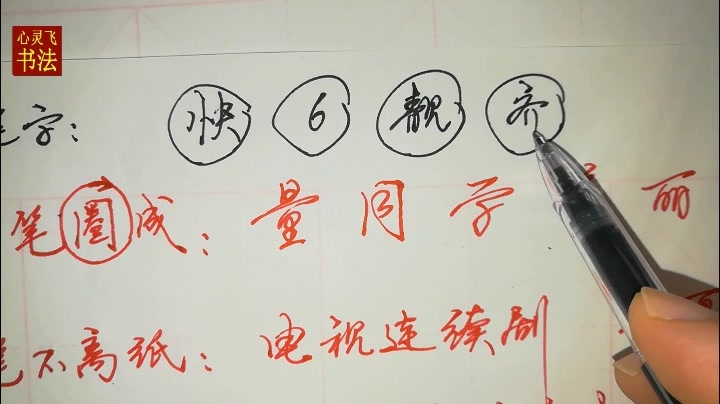 心灵飞
书法
字: 快 6 靓 齐
笔圈成: 量 同 学 丽
笔不离纸: 电视连续剧